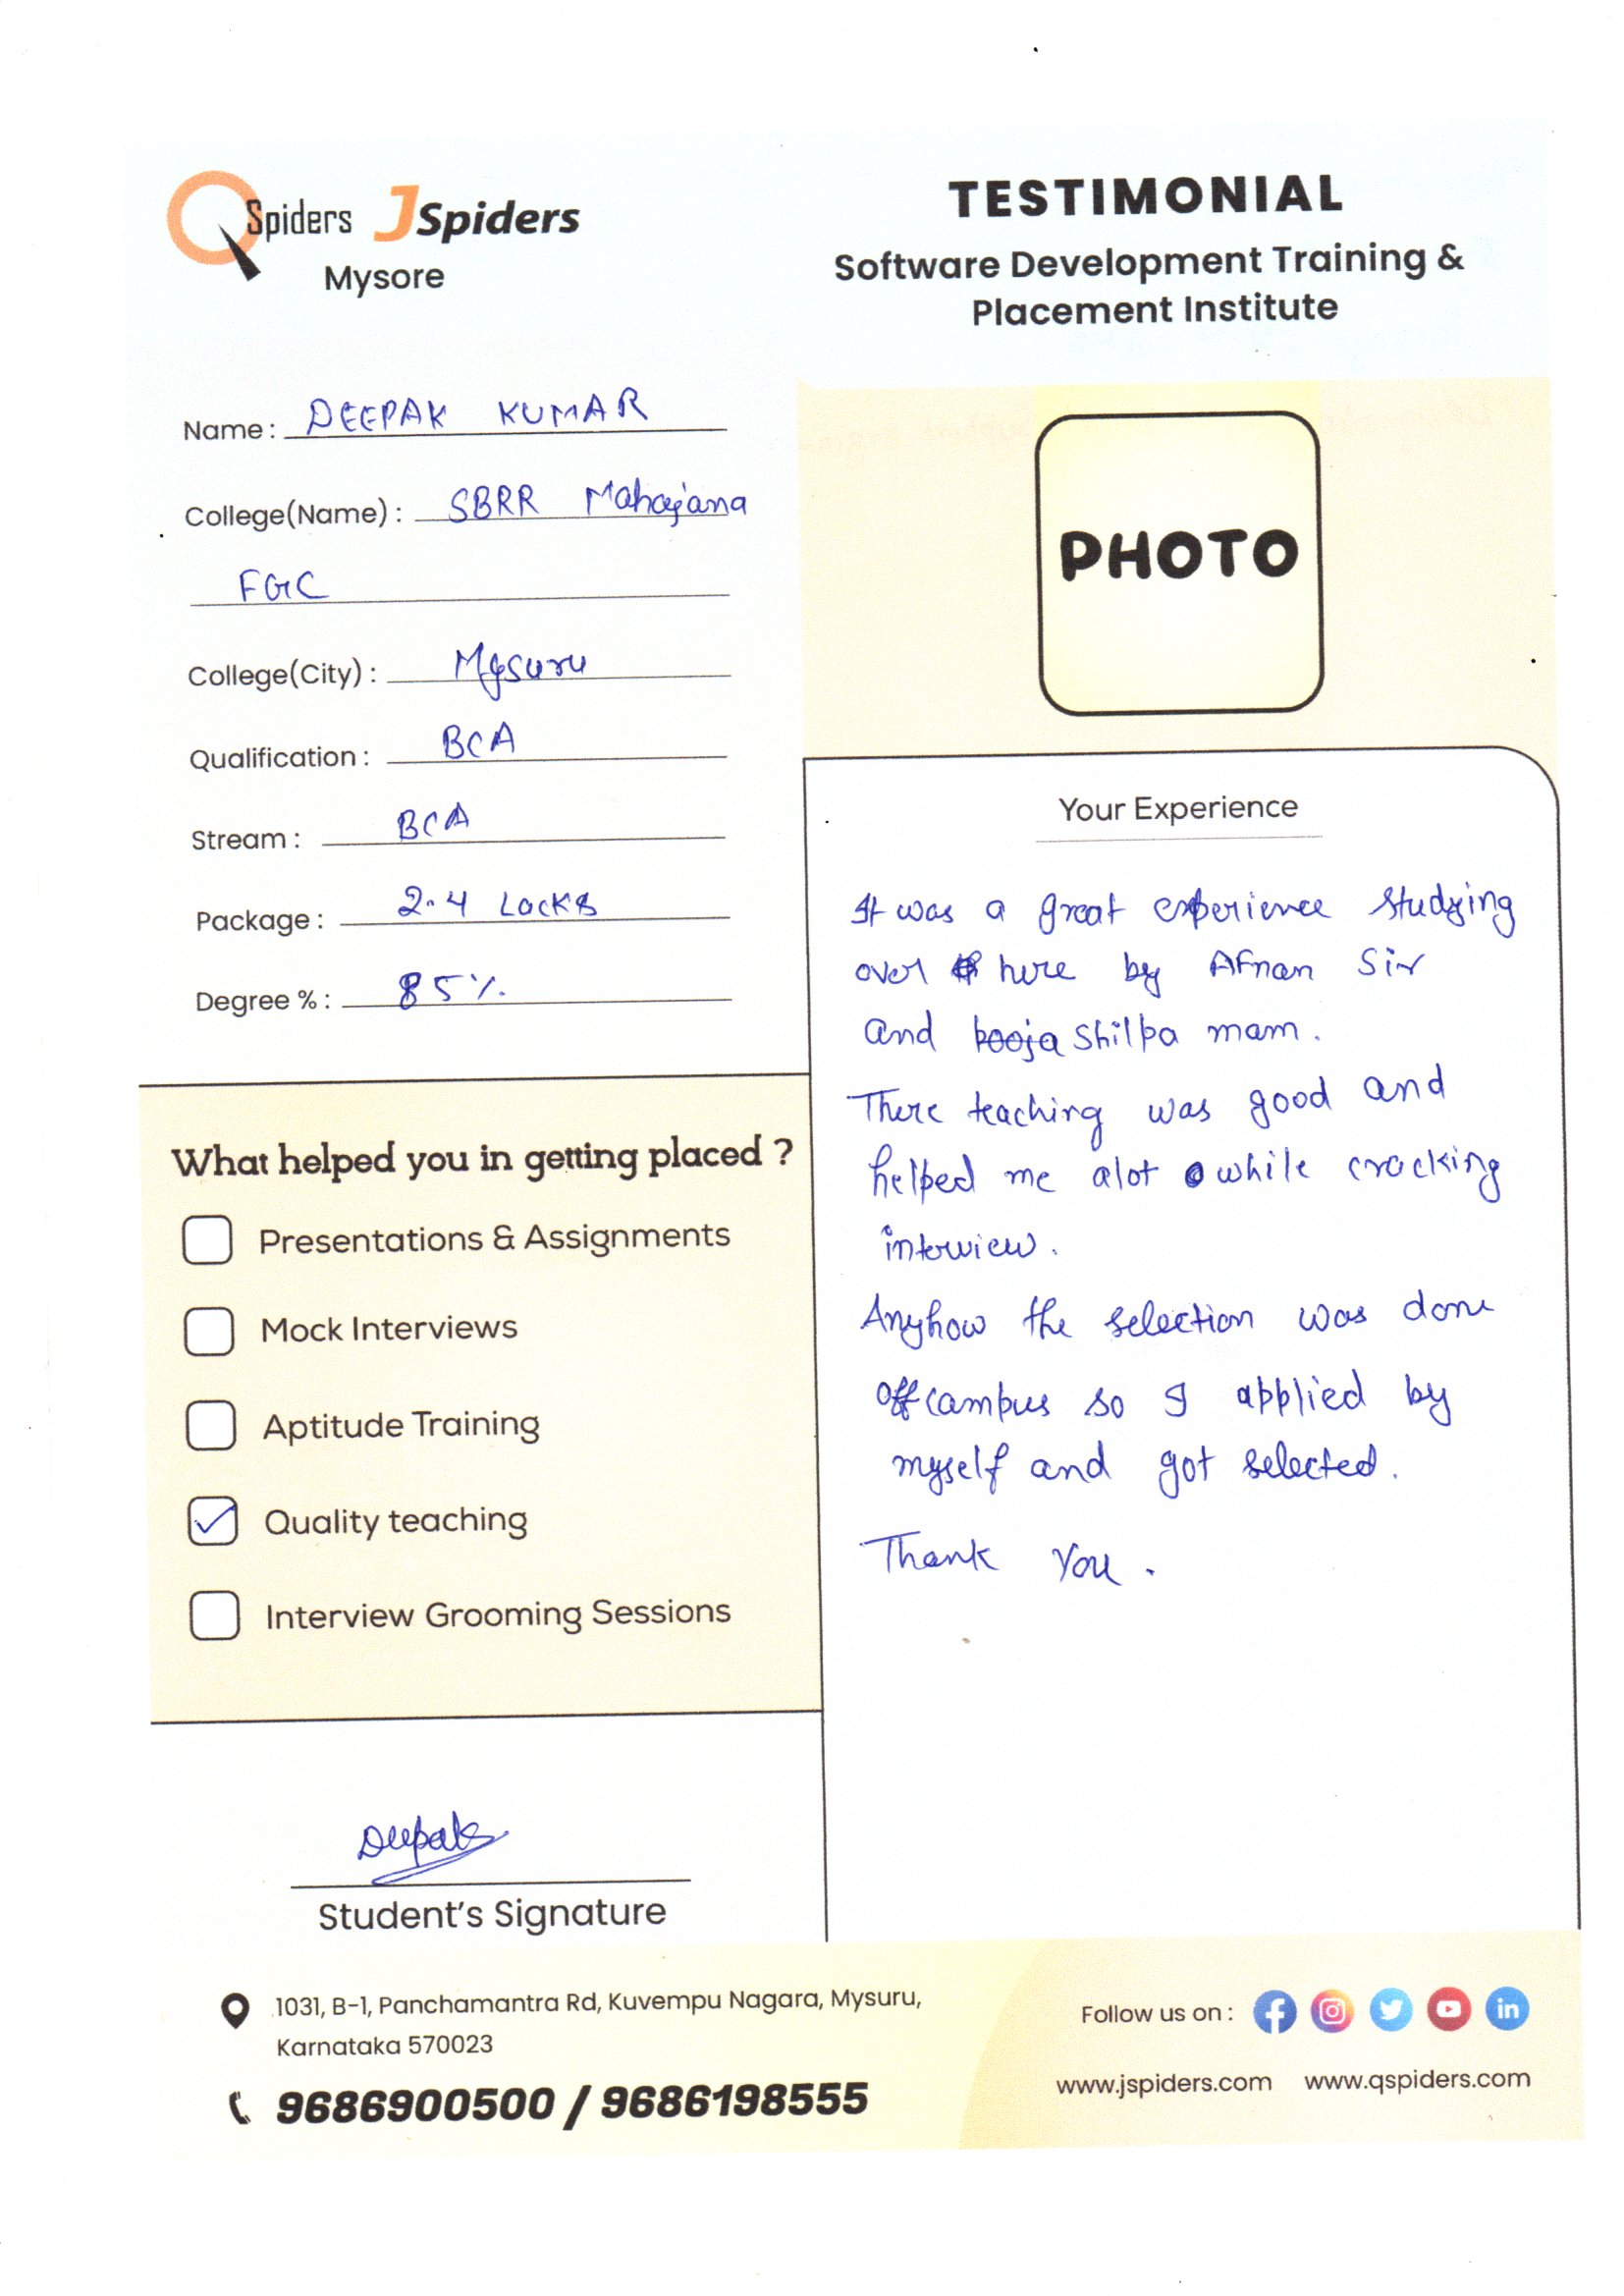 QSpiders JSpiders
Mysore
TESTIMONIAL
Software Development Training &
Placement Institute
Name : DEEPAK KUMAR
College(Name) : SBRR Mahajana
FGC
College(City) : Mysuru
Qualification : BCA
Stream : BCA
Package : 2.4 Lacks
Degree % : 85%
PHOTO
What helped you in getting placed ?
Presentations & Assignments
Mock Interviews
Aptitude Training
Quality teaching
Interview Grooming Sessions
Deepak
Student's Signature
Your Experience
It was a great experience studying
over here by Afnan Sir
and pooja Shilpa mam.
There teaching was good and
helped me alot while cracking
interview.
Anyhow the selection was done
off campus so I applied by
myself and got selected.
Thank You.
1031, B-1, Panchamantra Rd, Kuvempu Nagara, Mysuru,
Karnataka 570023
9686900500 / 9686198555
Follow us on :
www.jspiders.com www.qspiders.com